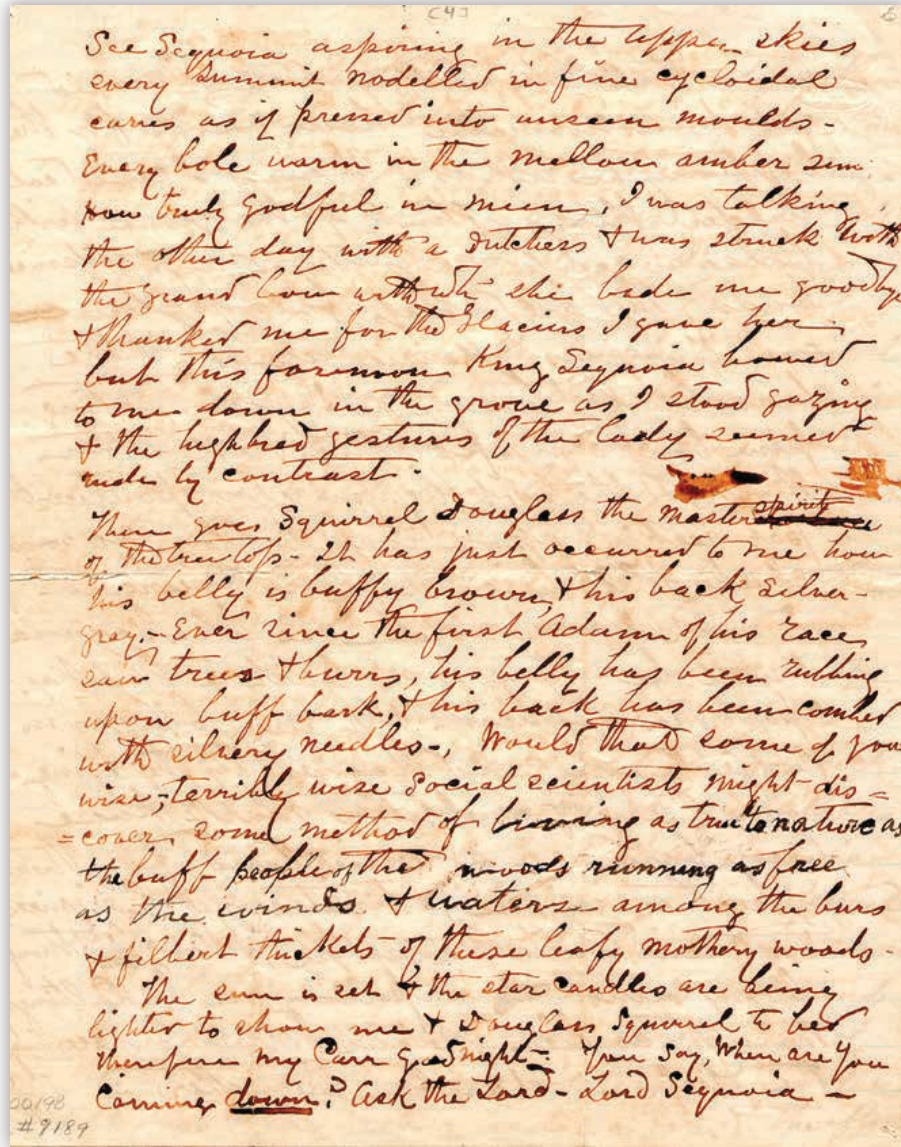 (4)
See Sequoia aspiring in the upper skies
every summit modelled in fine cycloidal
curves as if pressed into unseen moulds -
Every bole warm in the mellow amber sun.
How truly godful in mien. I was talking
the other day with a Dutchess & was struck with
the grand bow with wh she bade me goodbye
& thanked me for the Glaciers I gave her
but this forenoon King Sequoia bowed
to me down in the grove as I stood gazing
& the highbred gestures of the lady seemed
rude by contrast.
There goes Squirrel Douglass the master spirit
of the tree tops - It has just occurred to me how
his belly is buffy brown, & his back silver-
gray. - Ever since the first Adam of his race
saw trees & burrs, his belly has been rubbing
upon buff bark, & his back has been combed
with silvery needles -, Would that some of you
wise, terribly wise Social scientists might dis=
=cover some method of living as true to nature as
the buff people of the woods running as free
as the winds & waters among the burs
& filbert thickets of these leafy mothery woods -
The sun is set & the star candles are being
lighted to show me & Douglass Squirrel to bed
therefore my Carr goodnight - You say, When are you
Coming down? Ask the Lord - Lord Sequoia -
00198
#9189